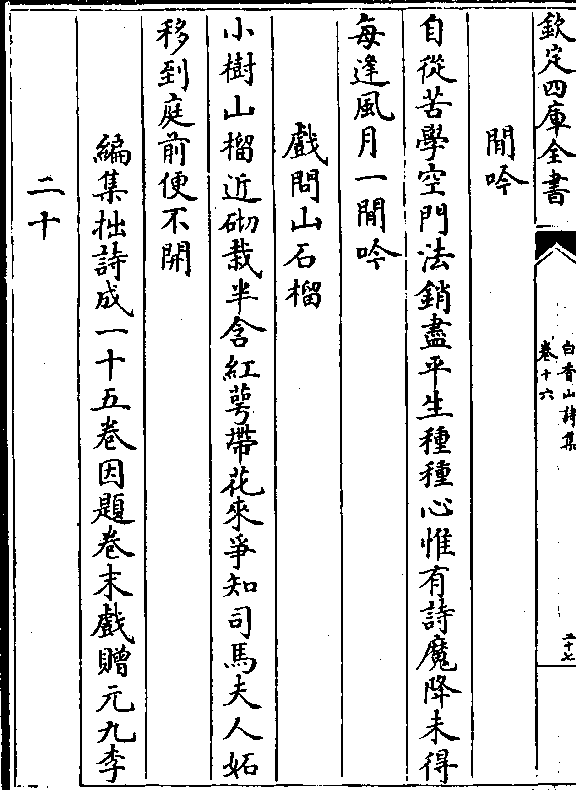 欽定四庫全書
白香山詩集
卷十六
二十七
閒吟
自從苦學空門法銷盡平生種種心惟有詩魔降未得
每逢風月一閒吟
戲問山石榴
小樹山榴近砌栽半含紅萼帶花來爭知司馬夫人妬
移到庭前便不開
編集拙詩成一十五卷因題卷末戲贈元九李
二十